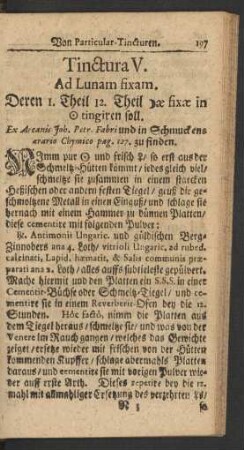 Von Particular-Tincturen. 197
Tinctura V.
Ad Lunam fixam.
Deren 1. Theil 12. Theil ☽æ fixæ in
☉ tingiren soll.
Ex Arcanis Joh. Petr. Fabri und in Schmuckens
ærario Chymico pag. 127. zu finden.
NImm pur ☉ und frisch ♀ so erst aus der
Schmeltz-Hütten kommt / jedes gleich viel/
schmeltze sie zusammen in einem starcken
Heßischen oder andern festen Tiegel / geuß die ge-
schmoltzene Metall in einen Einguß/ und schlage sie
hernach mit einem Hammer zu dünnen Platten/
diese cementire mit folgenden Pulver:
℞. Antimonii Ungaric. und güldischen Berg-
Zinnobers ana 4. Loth/ vitrioli Ungaric. ad rubed.
calcinati, Lapid. hæmatit. & Salis communis præ-
parati ana 2. Loth/ alles auffs subtieleste gepülvert.
Mache hiermit und den Platten ein S.S.S. in einer
Cementir-Büchse oder Schmeltz-Tiegel / und ce-
mentire sie in einem Reverberir-Ofen bey die 12.
Stunden. Hôc factô, nimm die Platten aus
dem Tiegel heraus / schmeltze sie / und was von der
Venere im Rauch gangen / welches das Gewichte
zeiget / ersetze wieder mit frischen von der Hütten
kommenden Kupffer / schlage abermahls Platten
daraus / und cementire sie mit vorigen Pulver wie-
der auff erste Arth. Dieses repetire bey die 12.
mahl mit allmahliger Ersetzung des verzehrten ♀s/
N so